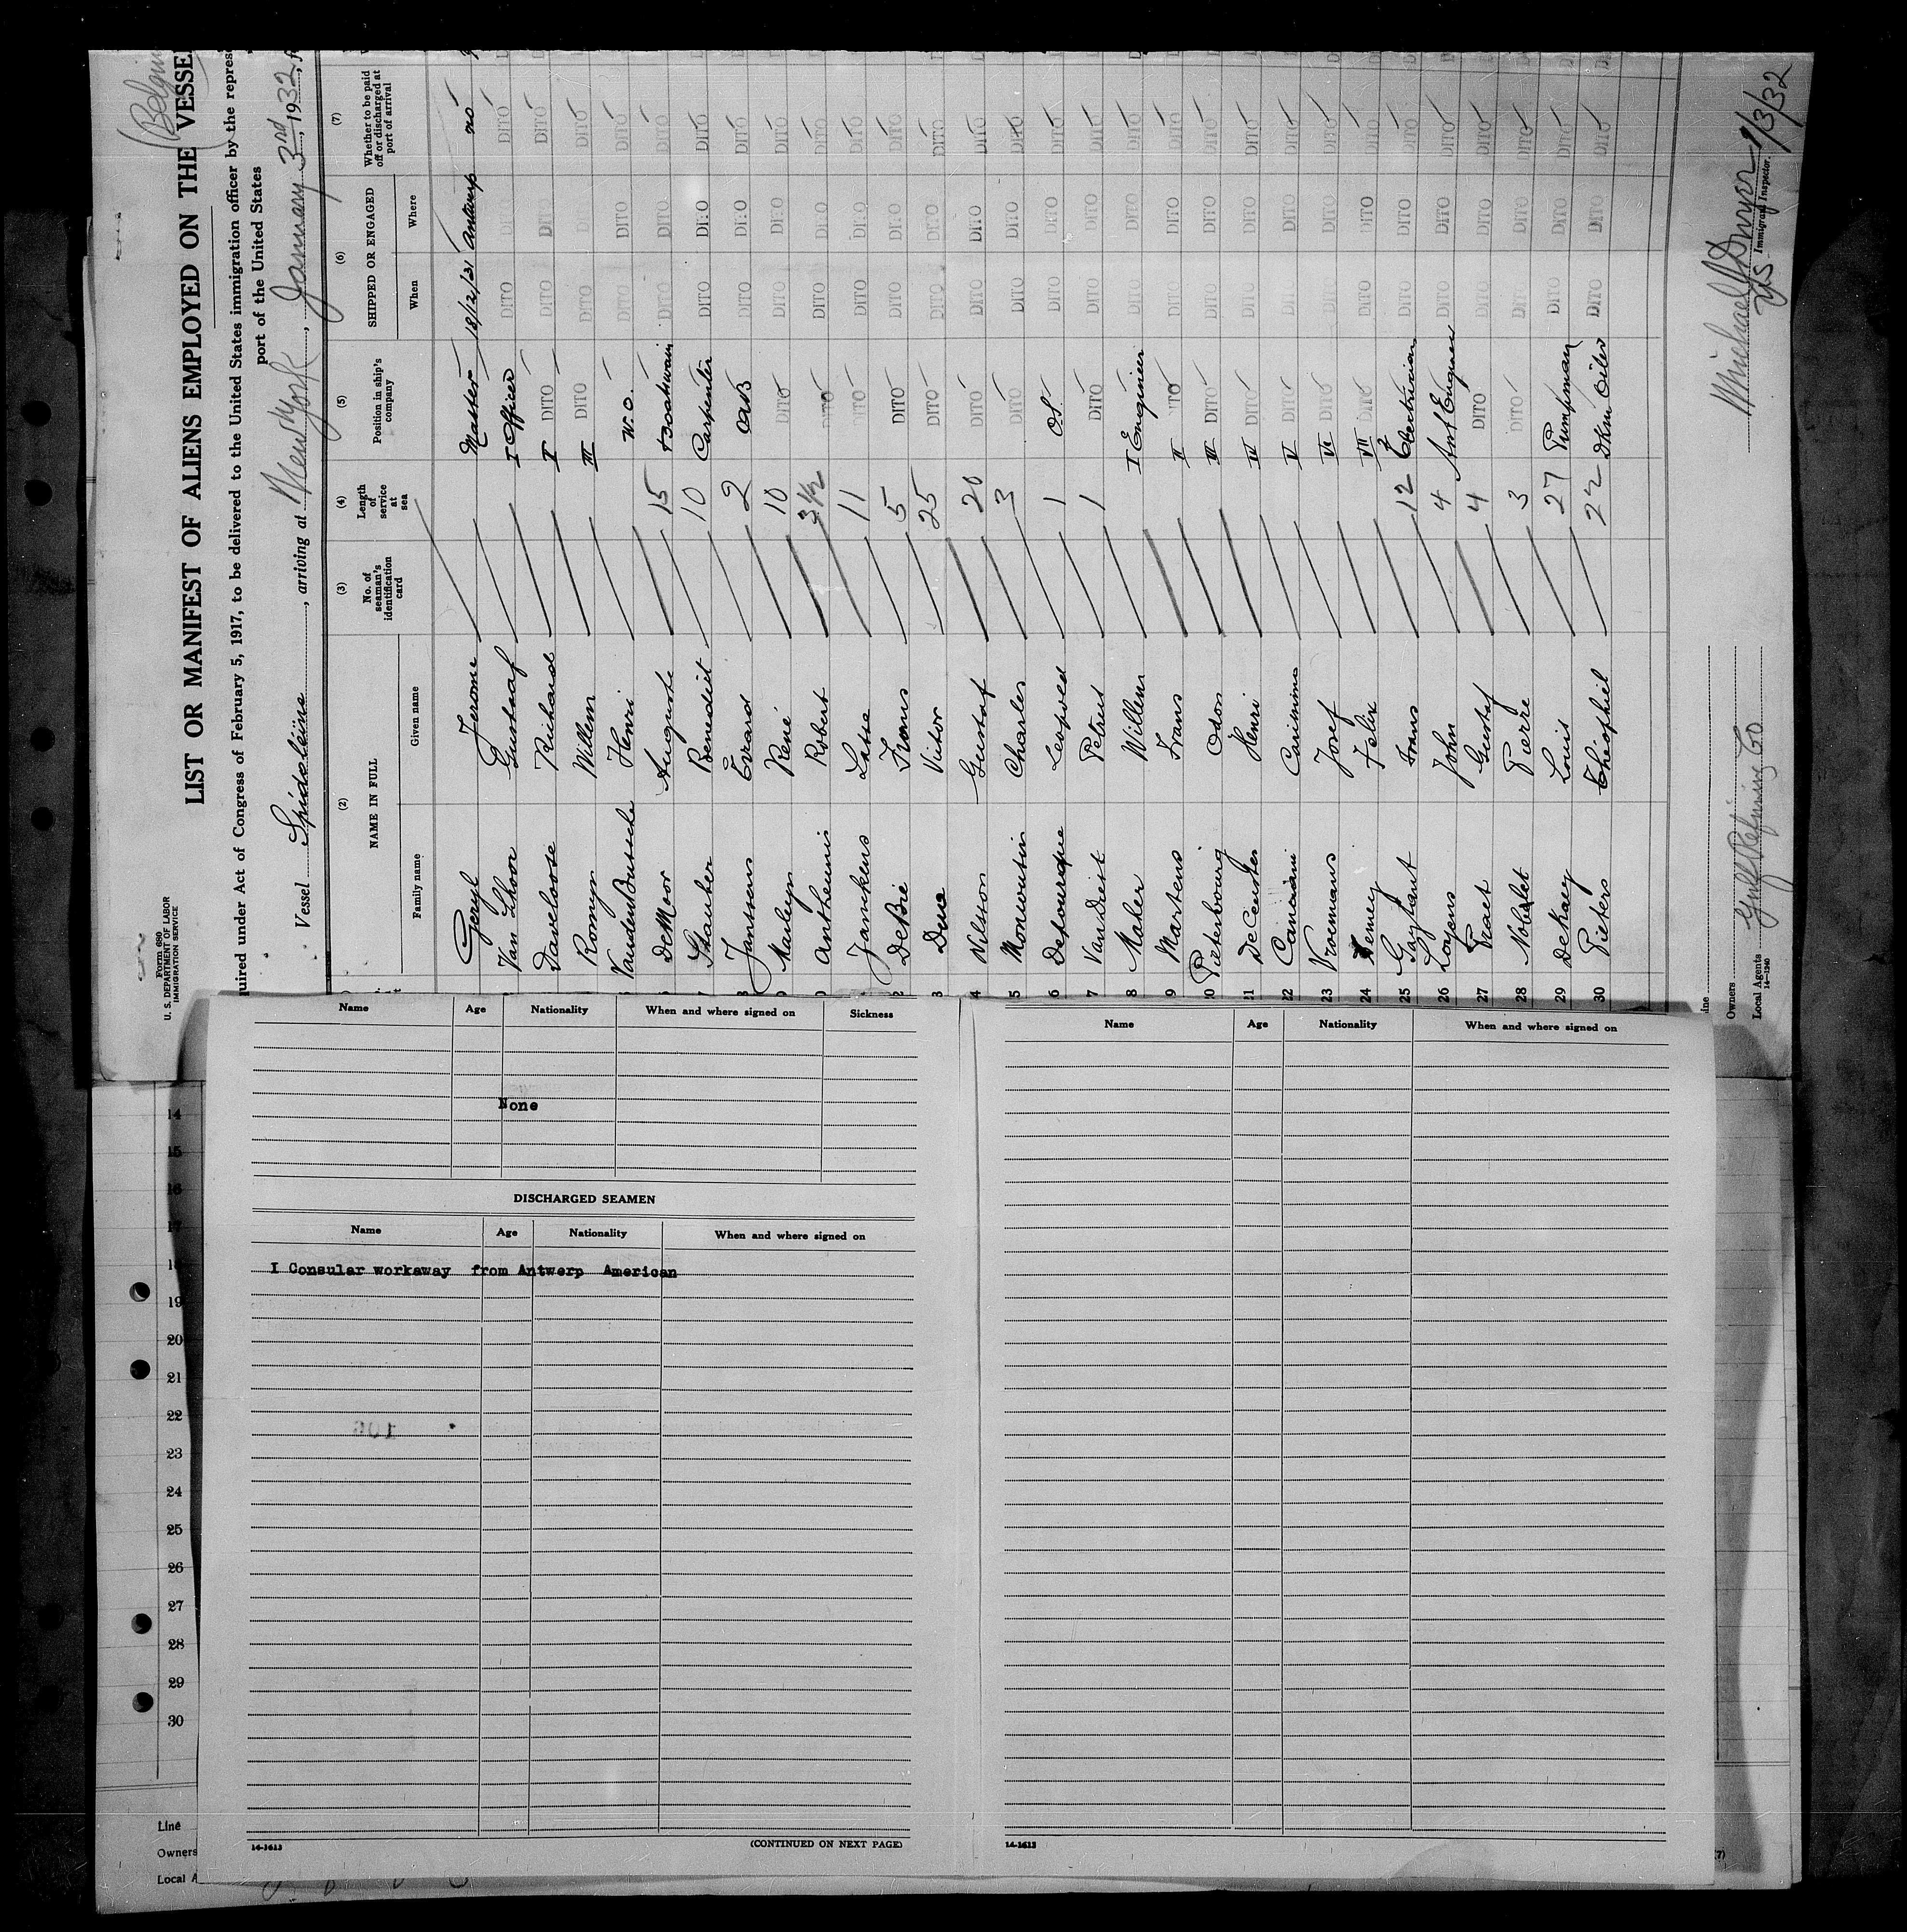 (Belgi
Form 680
U. S. DEPARTMENT OF LABOR
IMMIGRATION SERVICE
LIST OR MANIFEST OF ALIENS EMPLOYED ON THE VESSE
quired under Act of Congress of February 5, 1917, to be delivered to the United States immigration officer by the repres
port of the United States
Vessel Spidoléine, arriving at New York, January 3rd, 1932,
(2) (3) (4) (5) (6) (7)
NAME IN FULL No. of seaman's identification card Length of service at sea Position in ship's company SHIPPED OR ENGAGED Whether to be paid off or discharged at port of arrival
Family name Given name When Where
Geryl Jerome Master 18/12/31 Antwerp no
Van Thoor Gustaaf I Officer DITO DITO DITO
Daveloose Richard II DITO DITO DITO DITO
Romyn Willem III DITO DITO DITO DITO
Vanden Bussche Henri W.O. DITO DITO DITO
DeMoor Auguste 15 Boatswain DITO DITO DITO
Stauber Benedict 10 Carpenter DITO DITO DITO
8 Janssens Erard 2 OAB DITO DITO DITO
9 Marleyn René 10 DITO DITO DITO DITO
0 Anthennis Robert 3½ DITO DITO DITO DITO
1 Janckens Lasse 11 DITO DITO DITO DITO
2 DeBie Frans 5 DITO DITO DITO DITO
3 Duc Victor 25 DITO DITO DITO DITO
4 Nilsson Gustaf 20 DITO DITO DITO DITO
5 Monwoutin Charles 3 DITO DITO DITO DITO
6 Leopold 1 OS. DITO DITO DITO
7 Van Diest Petrus 1 DITO DITO DITO DITO
8 Maher Willem I Engineer DITO DITO DITO
9 Martens Frans II DITO DITO DITO DITO
20 Pieterbourg Odon III DITO DITO DITO DITO
21 DeCeuster Henri IV DITO DITO DITO DITO
22 Canciani V DITO DITO DITO DITO
23 Vroemans Josef VI DITO DITO DITO DITO
24 Temey Felix VII DITO DITO DITO DITO
25 Gaytant Frans 12 Electrician DITO DITO DITO
26 Loyens John 4 Ast Engineer DITO DITO DITO
27 Praet Gustaf 4 DITO DITO DITO DITO
28 Nobelet Pierre 3 DITO DITO DITO DITO
29 DeKaey Louis 27 Pumpman DITO DITO DITO
30 Pieters Théophiel 22 DKm Oiler DITO DITO DITO
ine
Owners
Local Agents Gulf Refining Co
14-1240
Michael J Dwyer 1/3/32
US Immigrant Inspector.
Name Age Nationality When and where signed on Sickness
None
DISCHARGED SEAMEN
Name Age Nationality When and where signed on
I Consular workaway from Antwerp American
14-1613 (CONTINUED ON NEXT PAGE)
Name Age Nationality When and where signed on
14-1613
14
15
16
17
18
19
20
21
22
23
24
25
26
27
28
29
30
Line
Owners
Local A